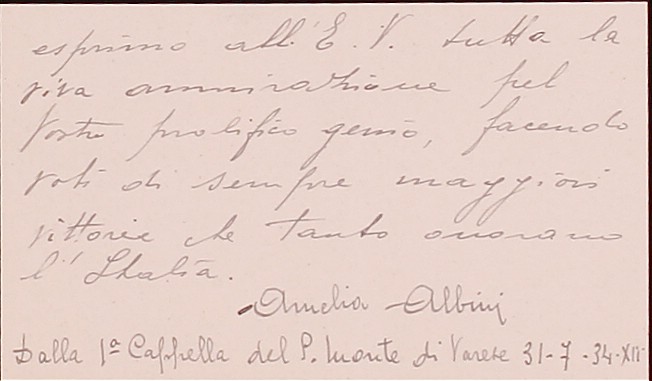 esprimo all' E. V. tutta la
viva ammirazione pel
Vostro prolifico genio, facendo
voti di sempre maggiori
vittorie che tanto onorano
l'Italia.
Amelia Albini
Dalla 1ª Cappella del S. Monte di Varese 31-7-34-XII